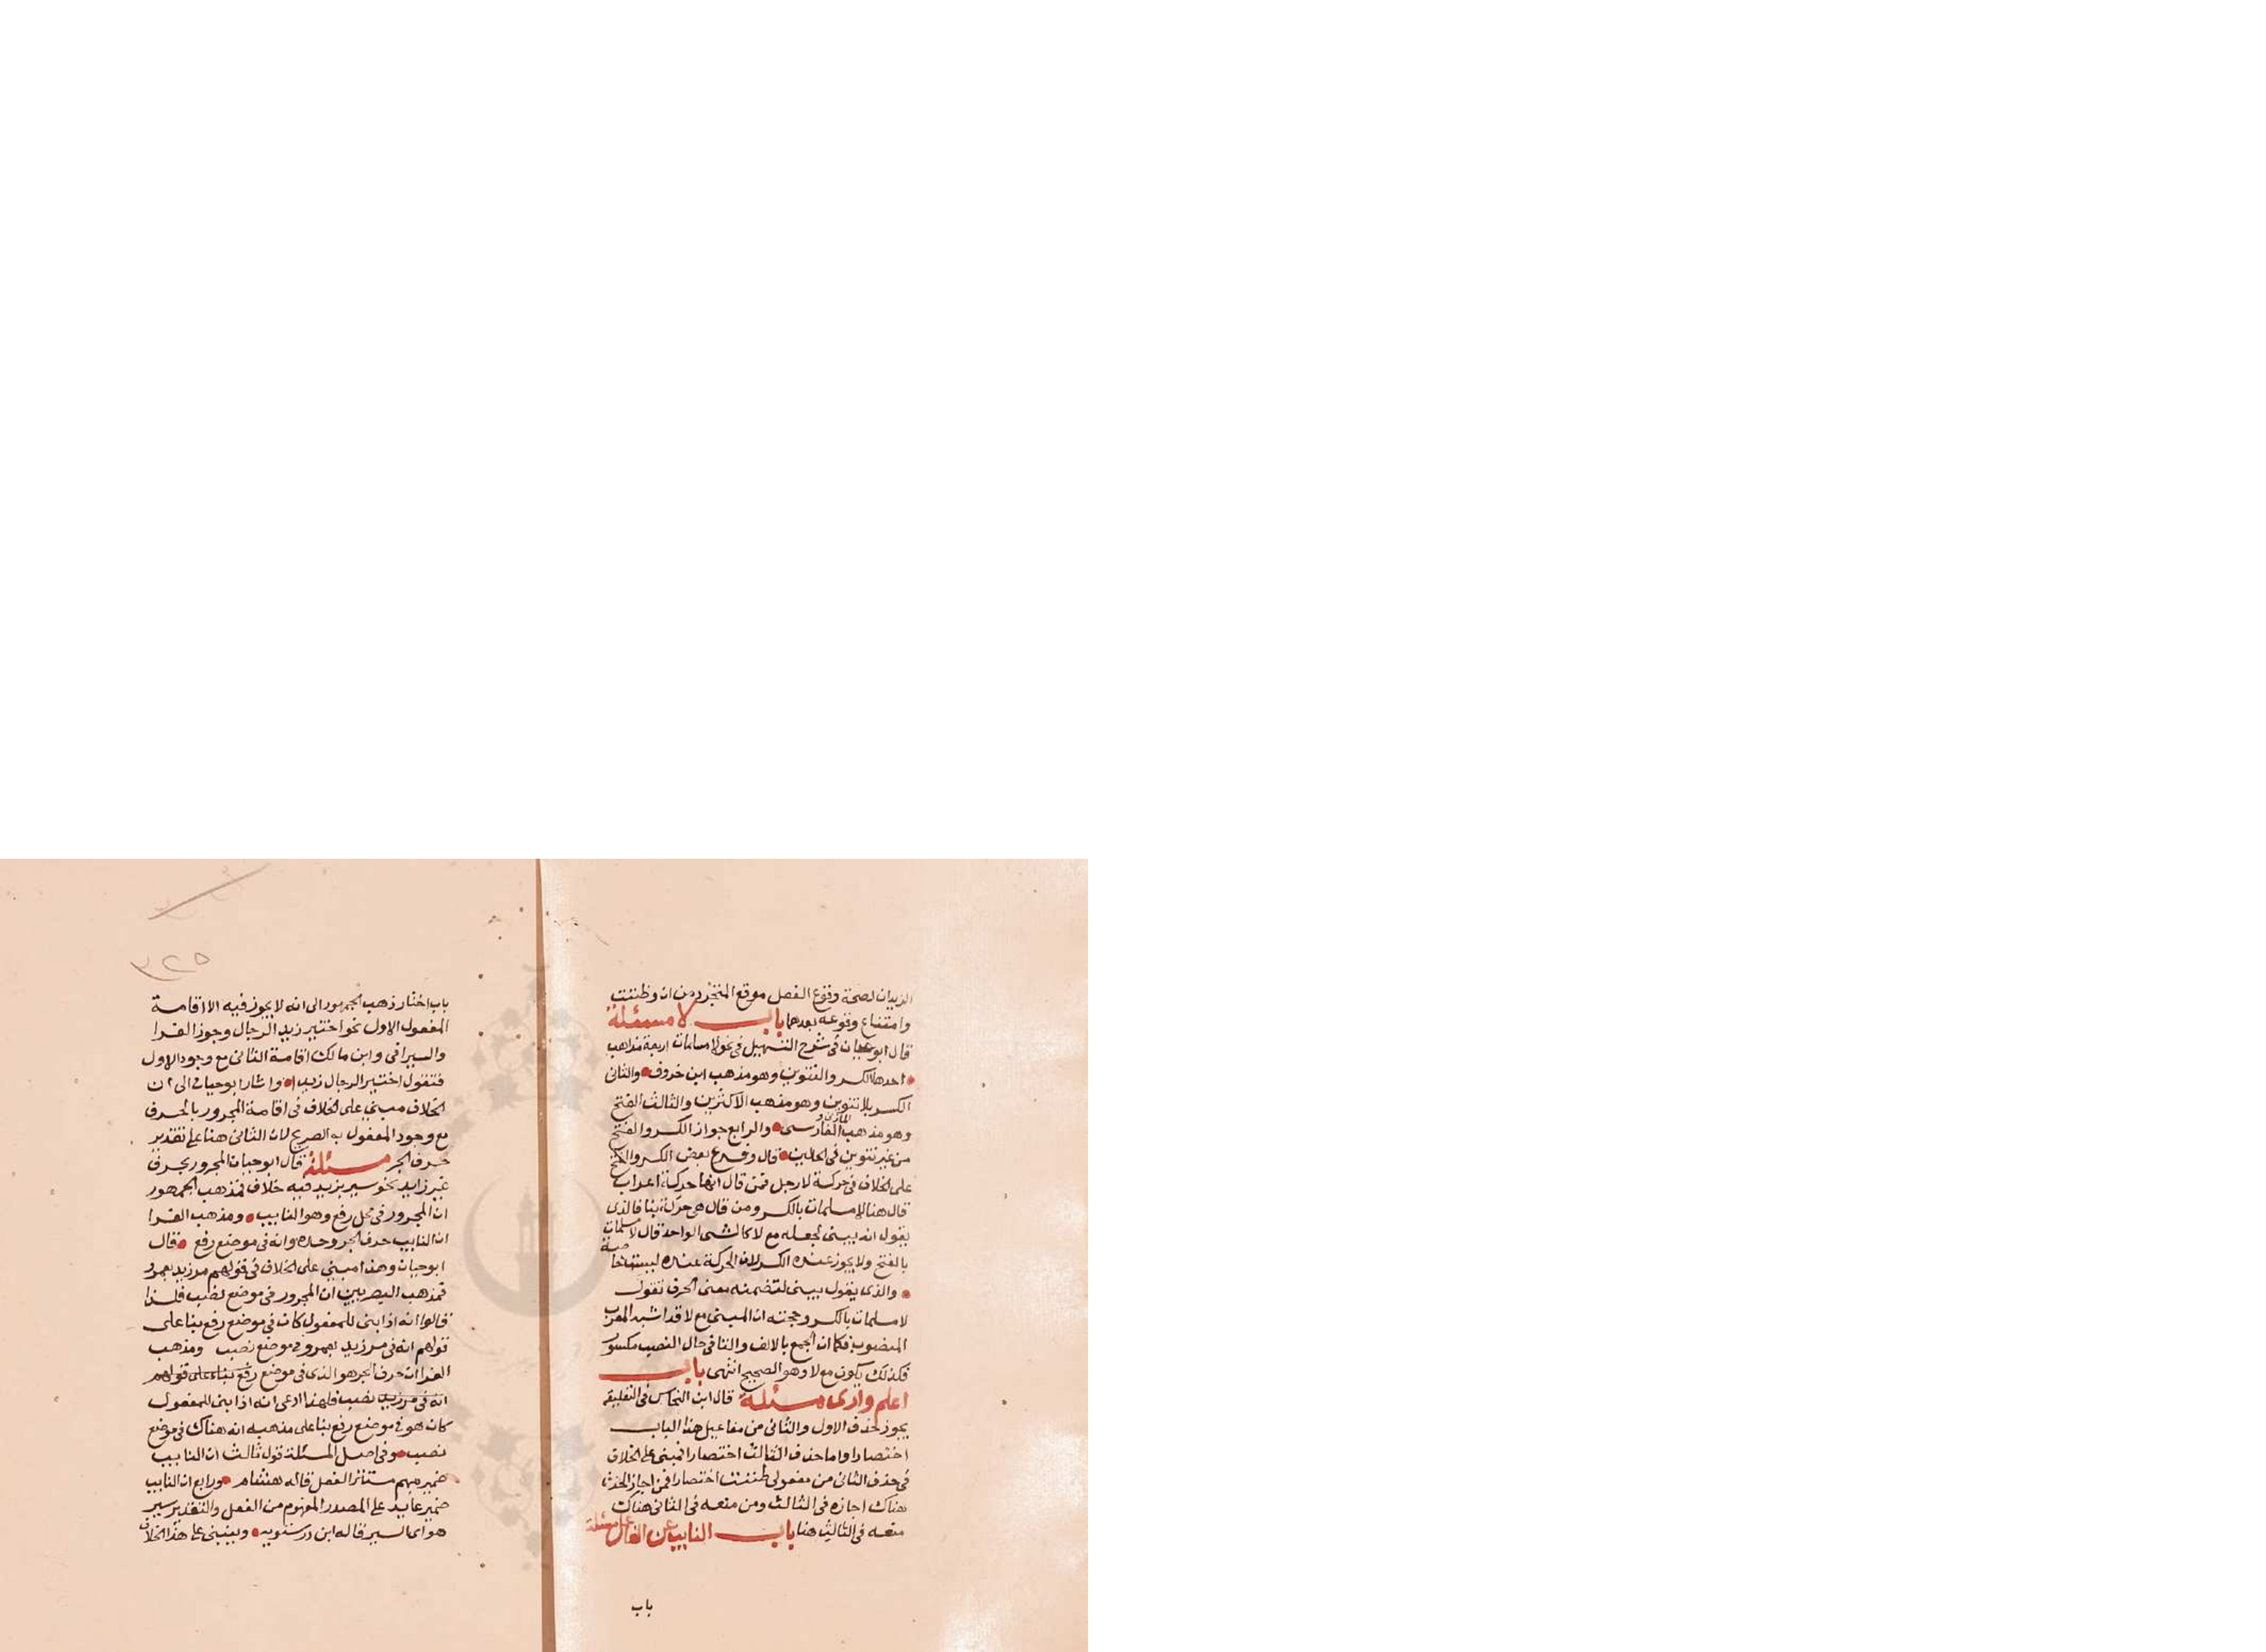 الزيدان لصحة وقوع الفصل موقع المتجرد من ان وظننت
وامتناع وقوعه بعدهما باب لا مسئلة
قال ابو حيان في شرح التسهيل في نحو لا مسلمات اربعة مذاهب
احدها الكسر والتنوين وهو مذهب ابن خروف والثاني
الكسر بلا تنوين وهو مذهب الاكثرين والثالث الفتح
وهو مذهب المازني والفارسي والرابع جواز الكسر والفتح
من غير تنوين في الحالين قال وفرع بعض الكسر والفتح
على الخلاف في حركة لا رجل فمن قال انها حركة اعراب
قال هنا لا مسلمات بالكسر ومن قال هي حركة بنا فالذي
يقول انه يبنى لجعله مع لا كالشي الواحد قال لا مسلمات
بالفتح ولا يجوز عنده الكسر لان الحركة عنده ليست خاصة
والذي يقول يبنى لتضمنه معنى الحرف تقول
لا مسلمات بالكسر وحجته ان المبنى مع لا قد اشبه المعرب
المنصوب فكما ان الجمع بالالف والتا في حال النصب مكسور
فكذلك يكون مع لا وهو الصحيح انتهى باب
اعلم وارى مسئلة قال ابن النحاس في التعليقة
يجوز حذف الاول والثاني من مفاعيل هذا الباب
اختصارا واما حذف الثالث اختصارا فمبنى على الخلاف
في حذف الثاني من مفعولي ظننت اختصارا فمن اجاز الحذف
هناك اجازه في الثالث ومن منعه في الثاني هناك
منعه في الثالث هنا باب النايب عن الفاعل مسئلة
باب
٣٢٥
باب اختار ذهب الجمهور الى انه لا يجوز فيه الا اقامة
المفعول الاول نحو اختير زيد الرجال وجوز الفرا
والسيرافي وابن مالك اقامة الثاني مع وجود الاول
فتقول اختير الرجال زيدا واشار ابو حيان الى ان
الخلاف مبني على الخلاف في اقامة المجرور بالحرف
مع وجود المفعول به الصريح لان الثاني هنا على تقدير
حرف الجر مسئلة قال ابو حيان المجرور بحرف
غير زايد نحو سير بزيد فيه خلاف فمذهب الجمهور
ان المجرور في محل رفع وهو النايب ومذهب الفرا
ان النايب حرف الجر وحده وانه في موضع رفع قال
ابو حيان وهذا مبني على الخلاف في قولهم مر زيد بعمرو
فمذهب البصريين ان المجرور في موضع نصب فلذا
قالوا انه اذا بنى للمفعول كان في موضع رفع بنا على
قولهم انه في مر زيد بعمرو في موضع نصب ومذهب
الفرا ان حرف الجر هو الذي في موضع رفع بنا على قولهم
انه في مر زيد نصب فلهذا ادعى انه اذا بنى للمفعول
كان هو في موضع رفع بنا على مذهبه انه هناك في موضع
نصب وفي اصل المسئلة قول ثالث ان النايب
ضمير مبهم مستتر الفعل قاله هشام ورابع ان النايب
ضمير عايد على المصدر المفهوم من الفعل والتقدير سير
هو اى السير قاله ابن درستويه وينبني على هذا الخلاف